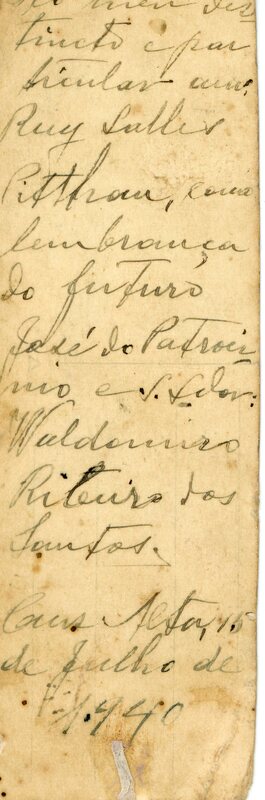 meu dis-
tincto e par
ticular am.
Ruy Salles
Pitthan, como
lembrança
do futuro
José do Patrocí
nio e S.
Waldomiro
Ribeiro dos
Santos.
Cruz Alta, 15
de Julho de
1.940